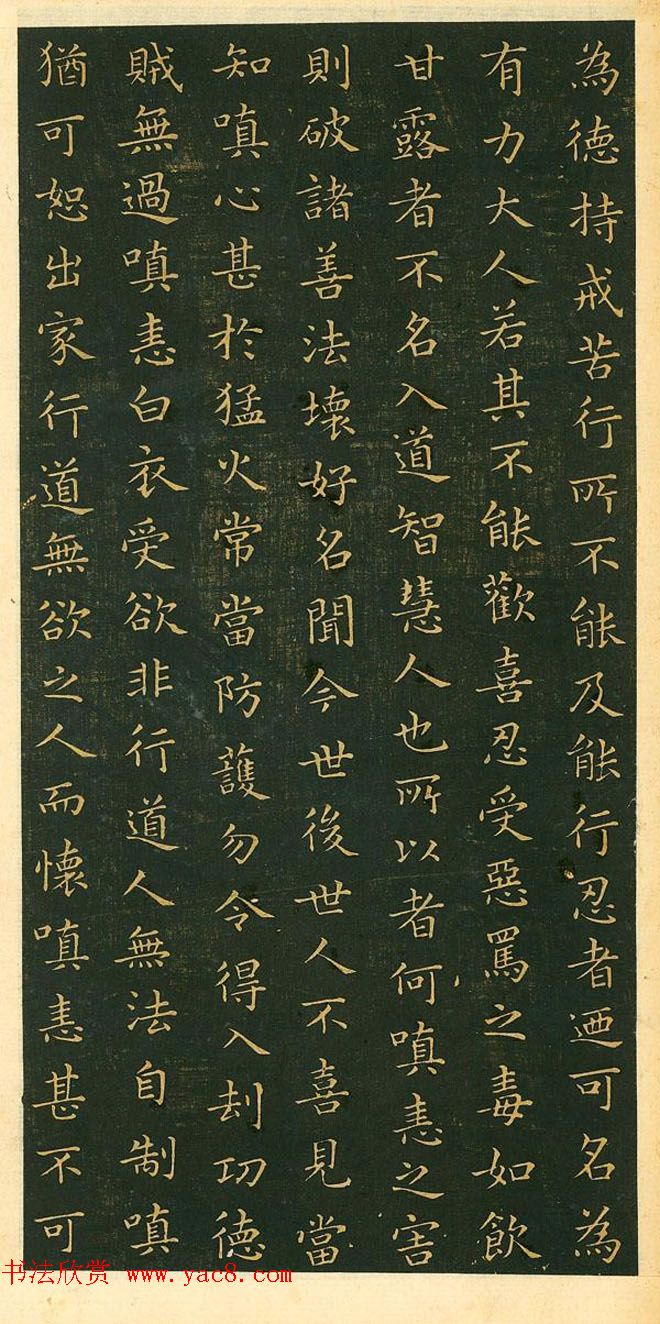 為德持戒苦行所不能及能行忍者迺可名為
有力大人若其不能歡喜忍受惡罵之毒如飲
甘露者不名入道智慧人也所以者何嗔恚之害
則破諸善法壞好名聞今世後世人不喜見當
知嗔心甚於猛火常當防護勿令得入刦功德
賊無過嗔恚白衣受欲非行道人無法自制嗔
猶可恕出家行道無欲之人而懷嗔恚甚不可
书法欣赏 www.yac8.com